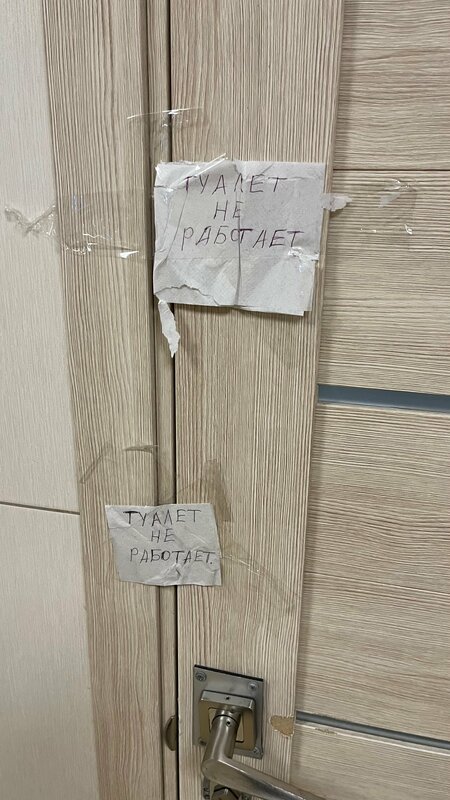 ТУАЛЕТ
НЕ
РАБОТАЕТ
ТУАЛЕТ
НЕ
РАБОТАЕТ.